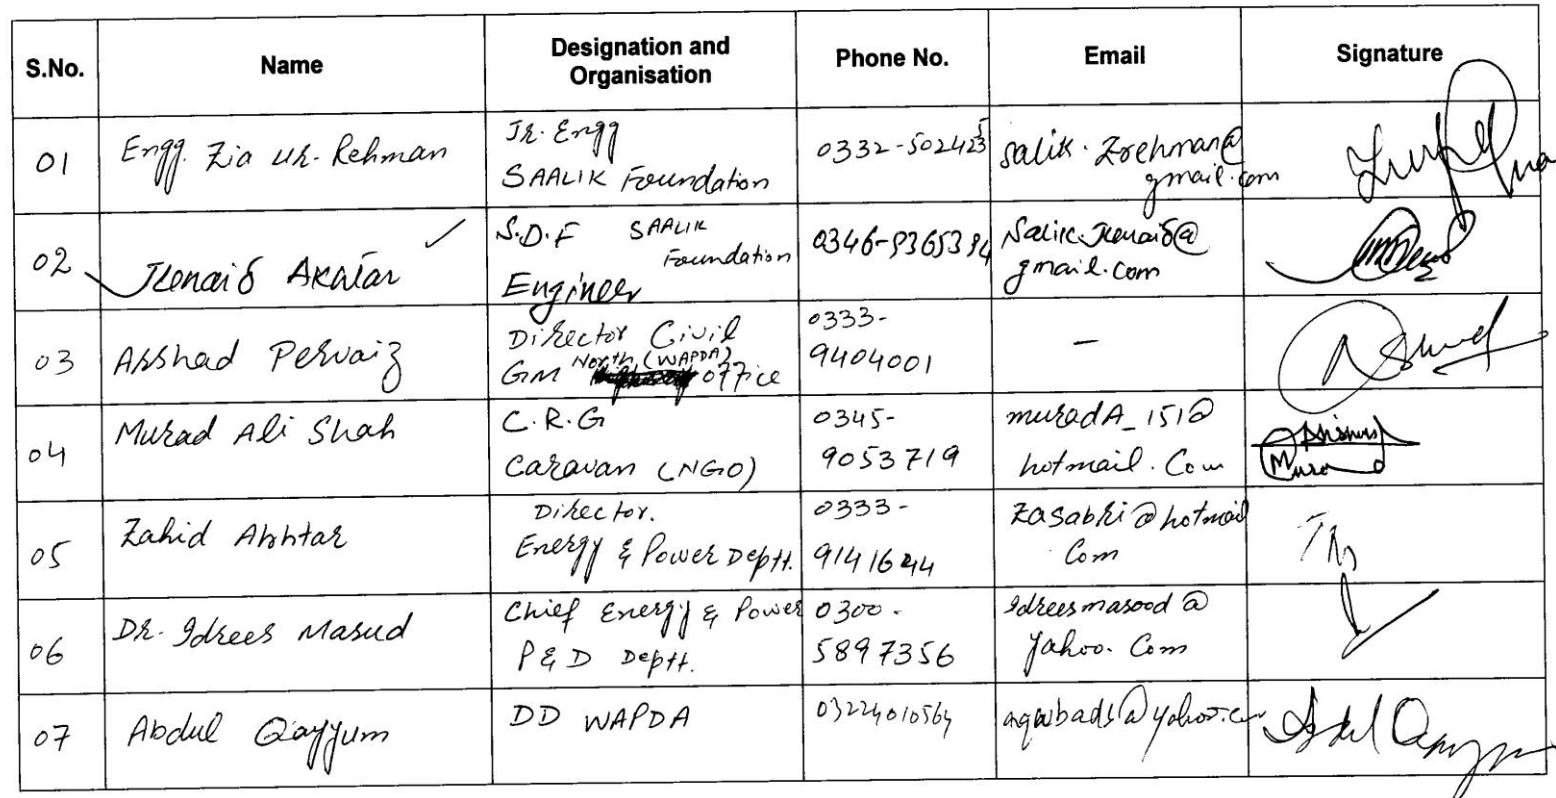 S.No. Name Designation and Organisation Phone No. Email Signature
01 Engg. Zia ur. Rehman
Jr. Engg
SAALIK Foundation
0332-5024235
salik.zrehman@
gmail.com
02 Junaid Akhtar
S.D.F SAALIK
Foundation
Engineer
0346-9365394
Salik.Junaid@
gmail.com
03 Arshad Pervaiz
Director Civil
GM North (WAPDA) office
0333-
9404001
—
04 Murad Ali Shah
C.R.G
Caravan (NGO)
0345-
9053719
muradA_151@
hotmail.Com
05 Zahid Akhtar
Director.
Energy & Power Deptt.
0333-
9141644
zasabri@hotmail
Com
06 Dr. Idrees Masud
Chief Energy & Power
P&D Deptt.
0300-
5897356
Idreesmasood@
yahoo.Com
07 Abdul Qayyum
DD WAPDA
03224010564